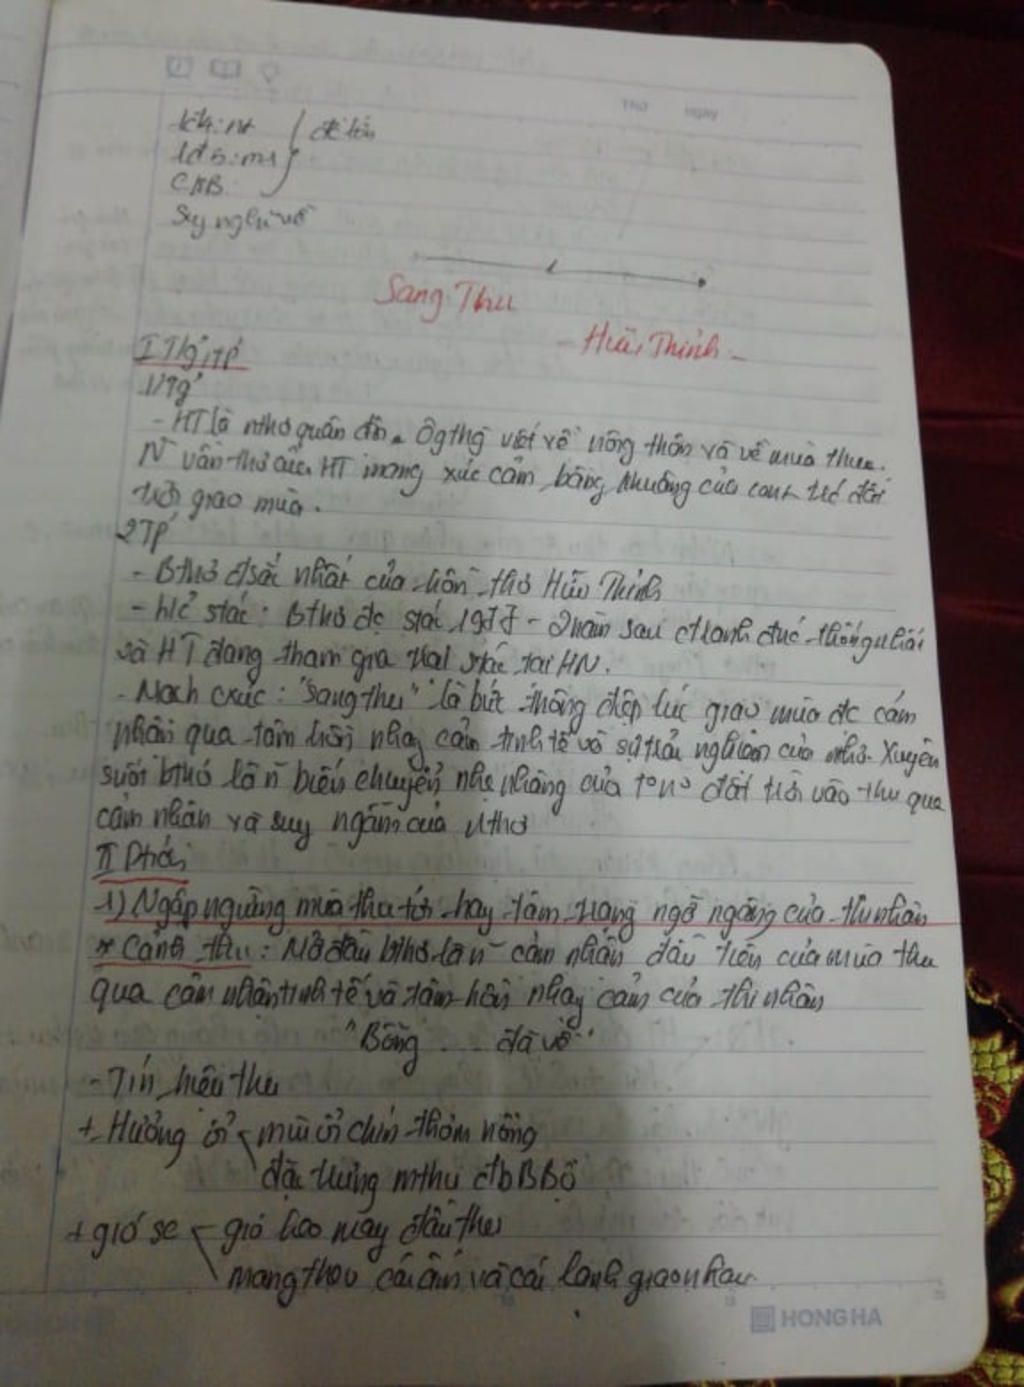 Thứ Ngày
lđ5: m1
Suy nghĩ về
Sang Thu
- Hữu Thỉnh -
I Tg, TP
1/Tg
- HT là nthơ quân đội. Ôg thg viết về nông thôn và về mùa thu.
N vần thơ của HT mang xúc cảm bâng khuâng của
trời giao mùa.
2 TP
- Bthơ đsắc nhất của hồn thơ Hữu Thỉnh
- h/c stác: Bthơ đc stác 1977 - 2 năm sau thống nhất
và HT đang tham gia trại stác tại HN.
- Mạch cxúc: "Sang thu" là bức thông điệp lúc giao mùa đc cảm
nhận qua tâm hồn nhạy cảm tinh tế và sự trải nghiệm của nthơ. Xuyên
suốt bthơ là n biến chuyển nhẹ nhàng của đất trời vào thu qua
cảm nhận và suy ngẫm của nthơ
II Ptích
1) Ngấp ngưỡng mùa thu tới hay tâm trạng ngỡ ngàng của thi nhân
* Cảnh thu: Mở đầu bthơ là n cảm nhận đầu tiên của mùa thu
qua cảm nhận tinh tế và tâm hồn nhạy cảm của thi nhân
"Bỗng ... đã về"
- Tín hiệu thu
+ Hương ổi mùi ổi chín thơm nồng
đặc trưng mthu đb BBộ
+ gió se gió heo may đầu thu
mang theo cái ấm và cái lạnh giao nhau
HONG HA